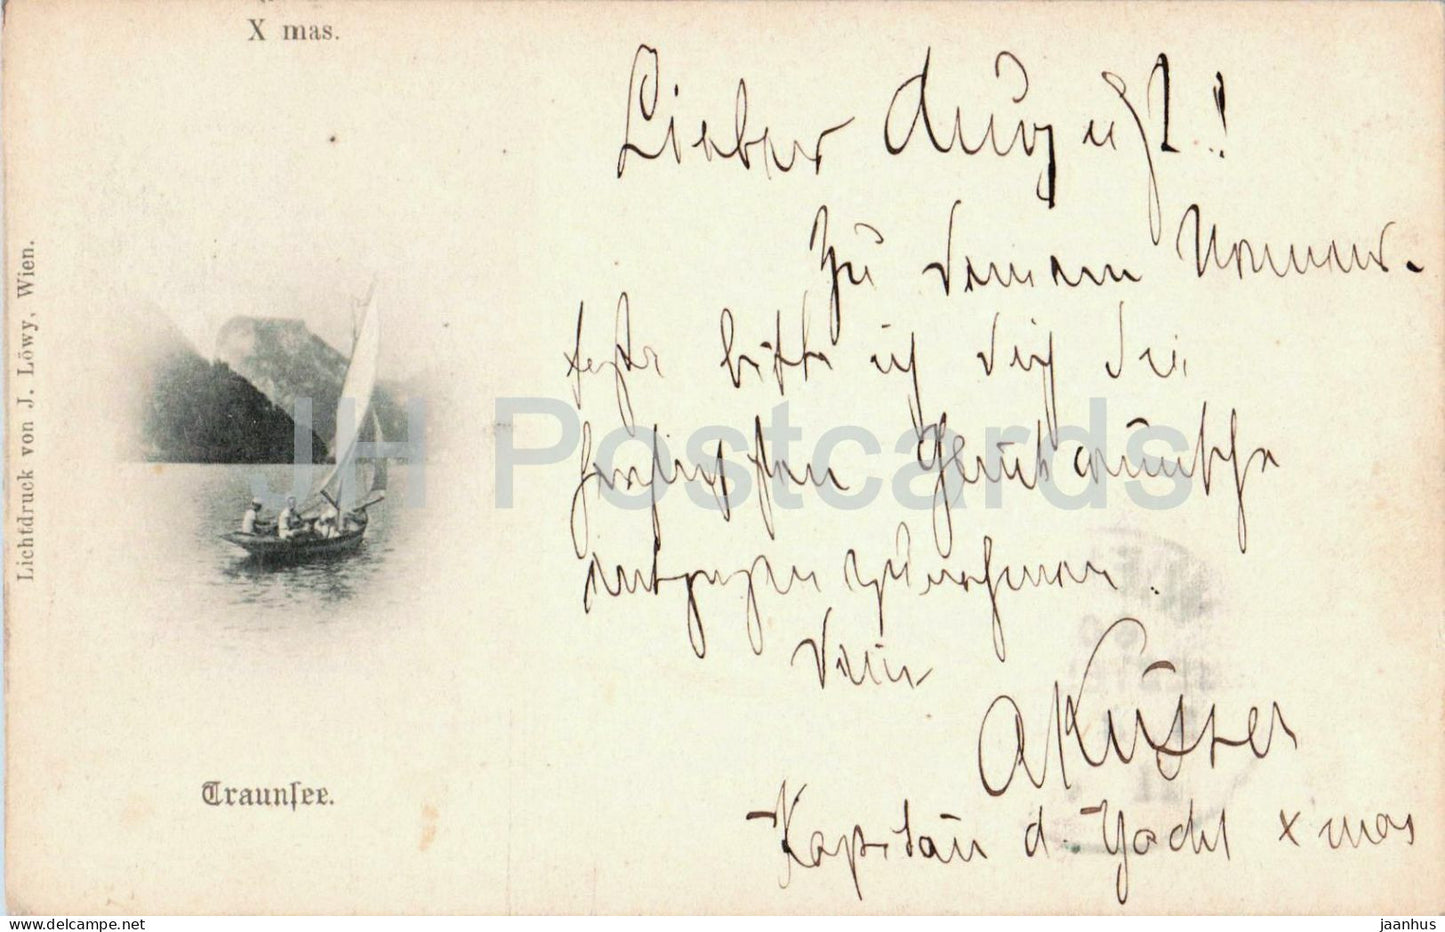 X mas.
Lieber August!
Zu Deinem Namens-
feste bitte ich Dich die
herzlichsten Glückwünsche
entgegen zu nehmen.
Dein
A Küsser
Kapitän d. Yacht X mas
Traunsee.
Lichtdruck von J. Löwy, Wien.
JH Postcards
delcampe.net
jaanhus